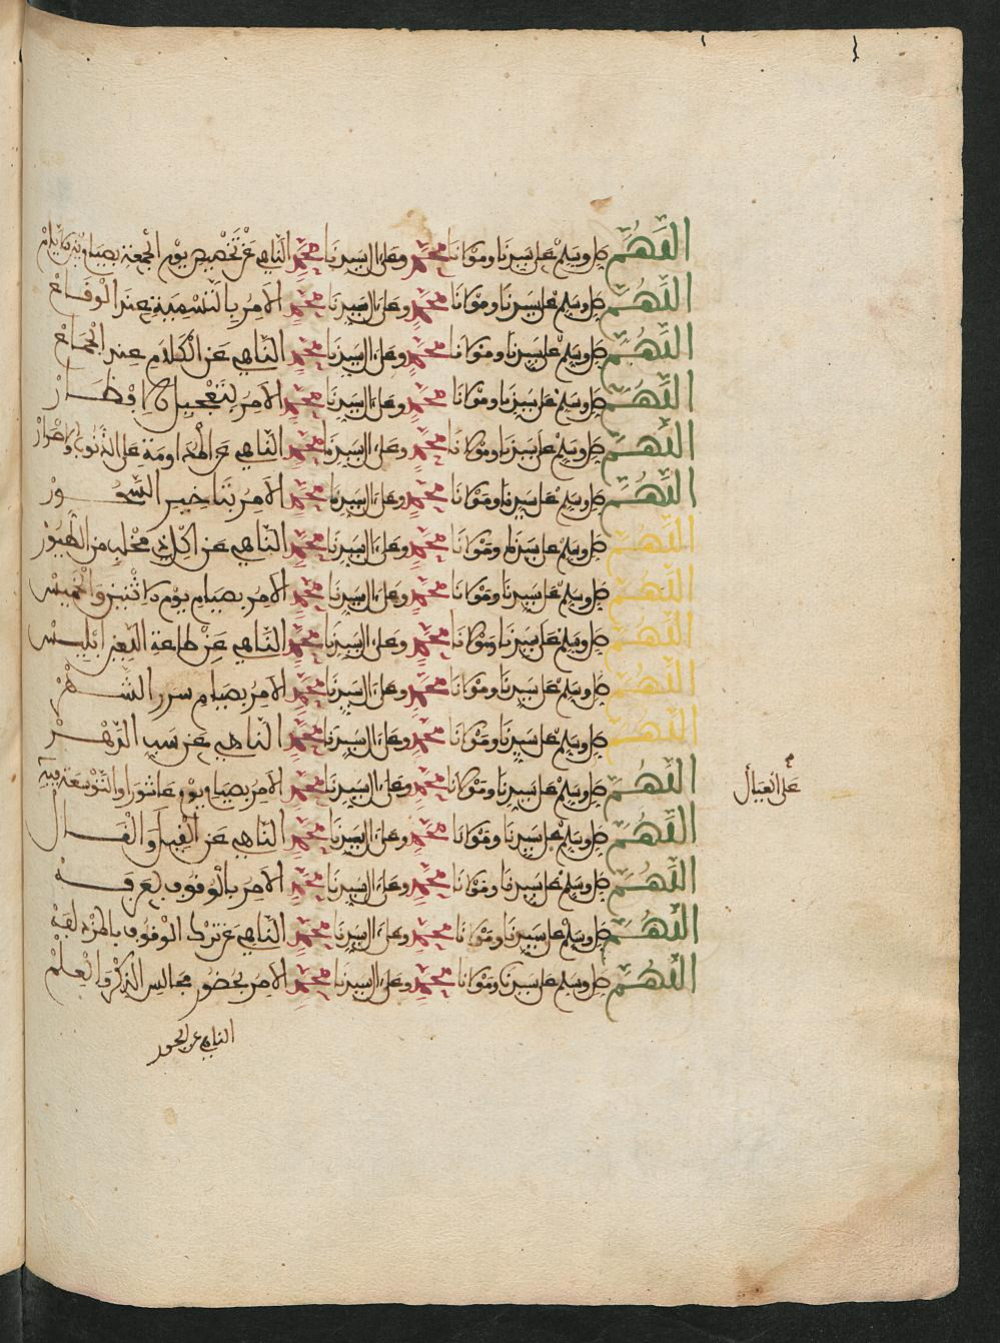 اللهم صل وسلم على سيدنا ومولانا محمد وعلى ءال سيدنا محمد الناهي عن تخصيص يوم الجمعة بصيام من بين الايام
اللهم صل وسلم على سيدنا ومولانا محمد وعلى ءال سيدنا محمد الامر بالتسمية عند الوقاع
اللهم صل وسلم على سيدنا ومولانا محمد وعلى ءال سيدنا محمد الناهي عن الكلام عند الجماع
اللهم صل وسلم على سيدنا ومولانا محمد وعلى ءال سيدنا محمد الامر بتعجيل الافطار
اللهم صل وسلم على سيدنا ومولانا محمد وعلى ءال سيدنا محمد الناهي عن المداومة على الذنوب والاصرار
اللهم صل وسلم على سيدنا ومولانا محمد وعلى ءال سيدنا محمد الامر بتاخير السحور
اللهم صل وسلم على سيدنا ومولانا محمد وعلى ءال سيدنا محمد الناهي عن اكل ذي مخلب من الطيور
اللهم صل وسلم على سيدنا ومولانا محمد وعلى ءال سيدنا محمد الامر بصيام يوم الاثنين والخميس
اللهم صل وسلم على سيدنا ومولانا محمد وعلى ءال سيدنا محمد الناهي عن طاعة اللعين ابليس
اللهم صل وسلم على سيدنا ومولانا محمد وعلى ءال سيدنا محمد الامر بصيام سرر الشهر
اللهم صل وسلم على سيدنا ومولانا محمد وعلى ءال سيدنا محمد الناهي عن سب الدهر
اللهم صل وسلم على سيدنا ومولانا محمد وعلى ءال سيدنا محمد الامر بصيام يوم عاشورا والتوسعة فيه
على العيال
اللهم صل وسلم على سيدنا ومولانا محمد وعلى ءال سيدنا محمد الناهي عن القيل والقال
اللهم صل وسلم على سيدنا ومولانا محمد وعلى ءال سيدنا محمد الامر بالوقوف بعرفة
اللهم صل وسلم على سيدنا ومولانا محمد وعلى ءال سيدنا محمد الناهي عن ترك الوقوف بالمزدلفة
اللهم صل وسلم على سيدنا ومولانا محمد وعلى ءال سيدنا محمد الامر بحضور مجالس الذكر والعلم
الناهي عن الجور